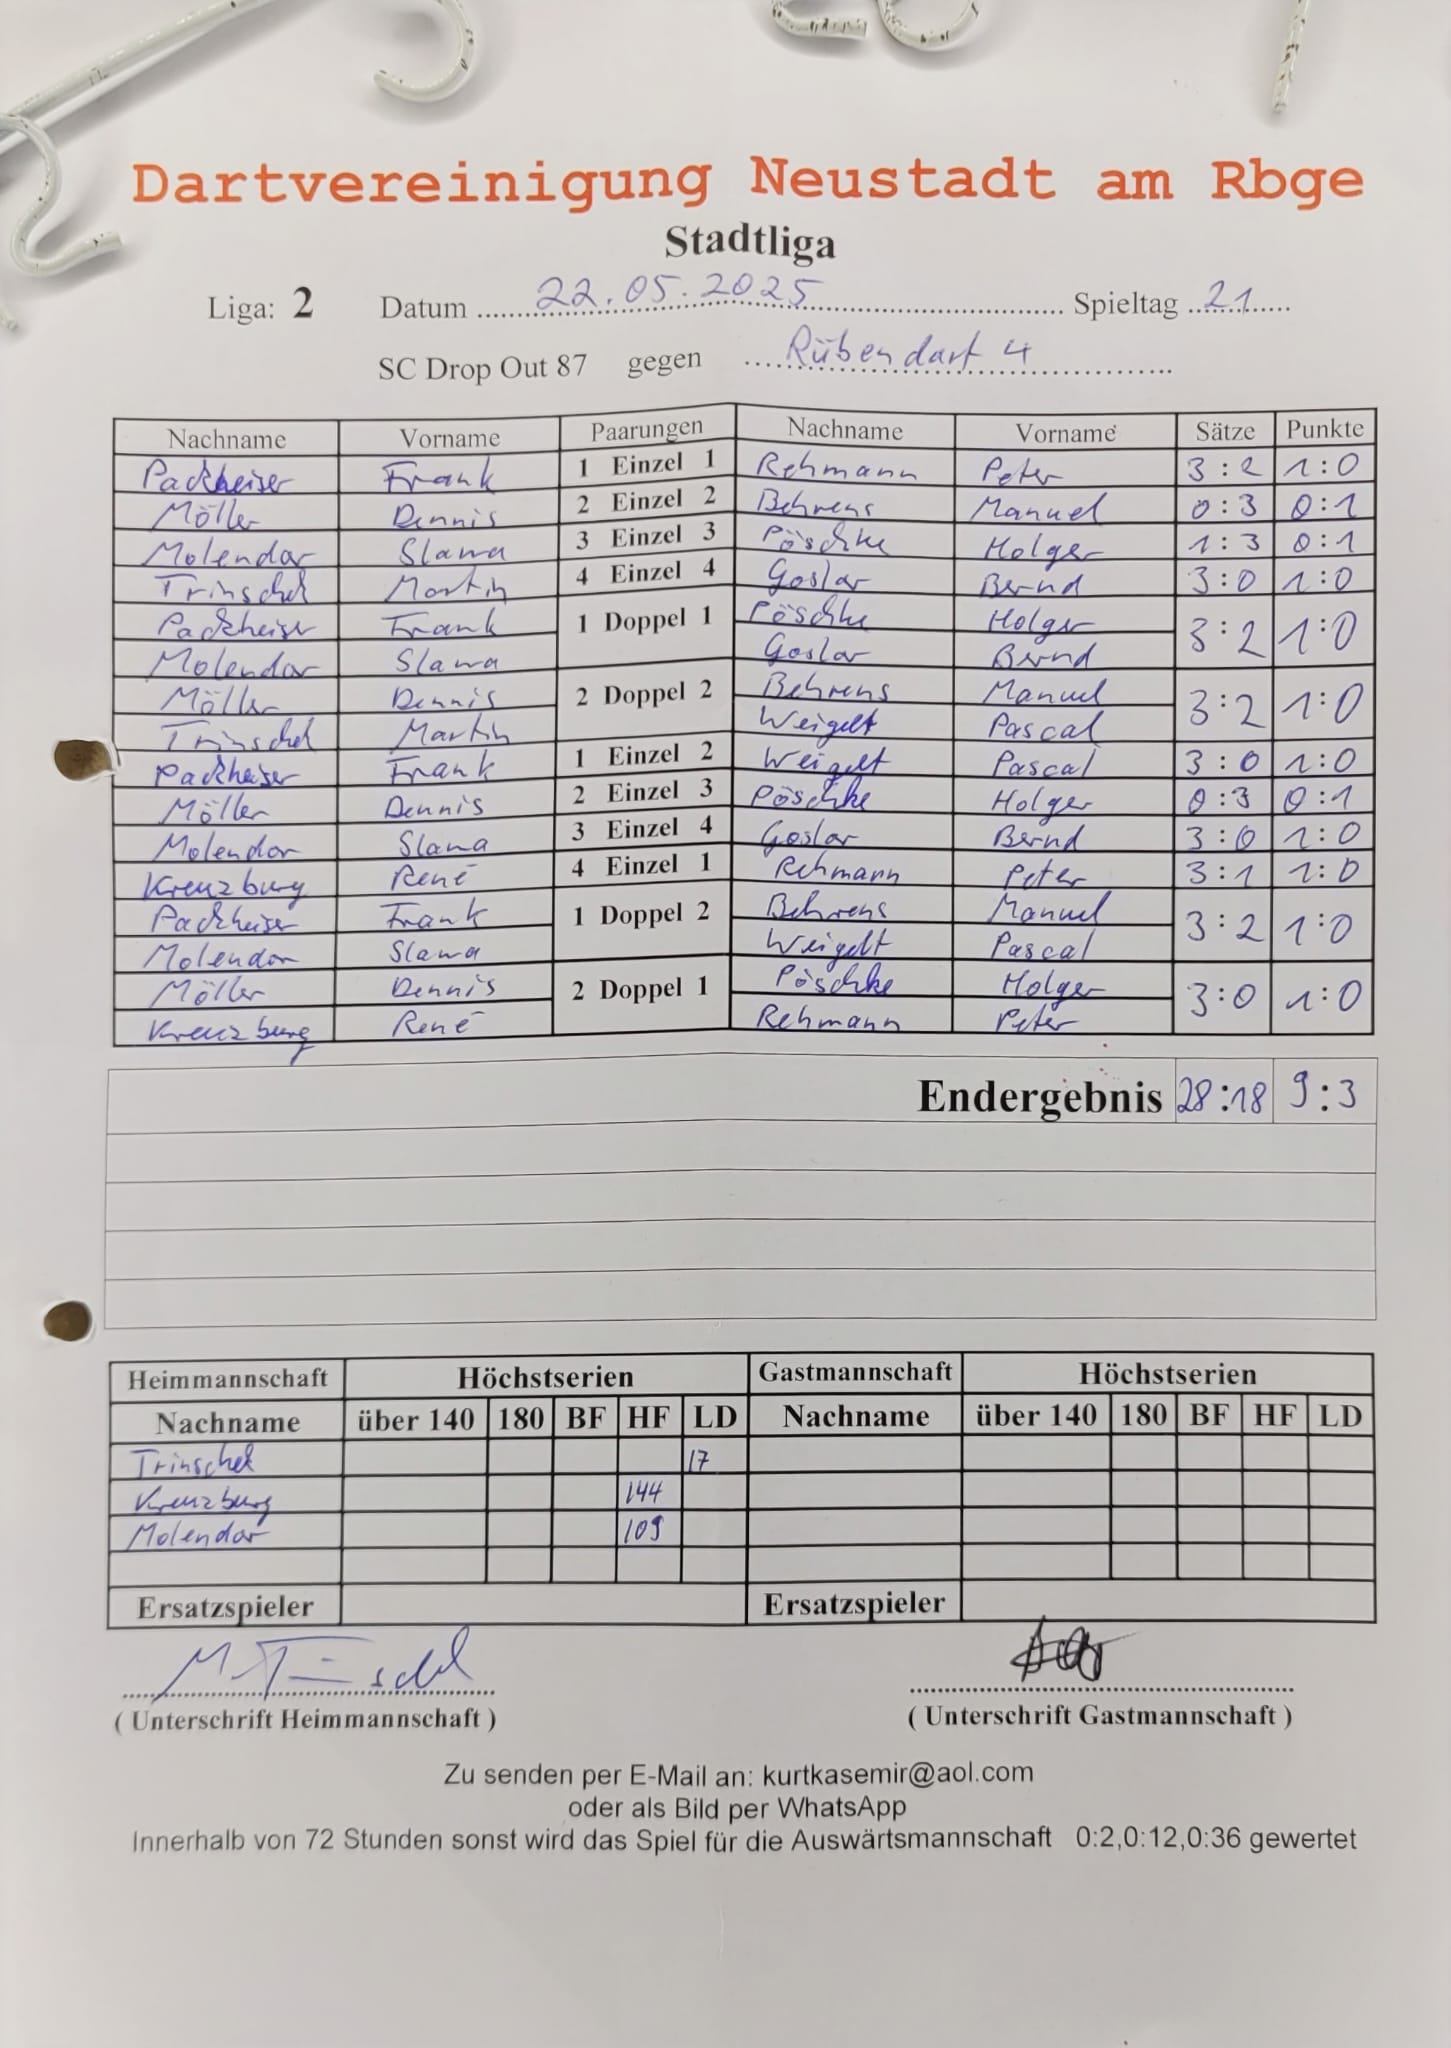 Dartvereinigung Neustadt am Rbge
Stadtliga
Liga: 2 Datum 22.05.2025 Spieltag 21
SC Drop Out 87 gegen Rübendart 4
Nachname Vorname Paarungen Nachname Vorname Sätze Punkte
Packheiser Frank 1 Einzel 1 Rehmann Peter 3:2 1:0
Möller Dennis 2 Einzel 2 Behrens Manuel 0:3 0:1
Molendar Slawa 3 Einzel 3 Pöschke Holger 1:3 0:1
Trinschek Martin 4 Einzel 4 Goslar Bernd 3:0 1:0
Packheiser Frank 1 Doppel 1 Pöschke Holger 3:2 1:0
Molendar Slawa Goslar Bernd
Möller Dennis 2 Doppel 2 Behrens Manuel 3:2 1:0
Trinschek Martin Weigelt Pascal
Packheiser Frank 1 Einzel 2 Weigelt Pascal 3:0 1:0
Möller Dennis 2 Einzel 3 Pöschke Holger 0:3 0:1
Molendar Slawa 3 Einzel 4 Goslar Bernd 3:0 1:0
Kreuzburg René 4 Einzel 1 Rehmann Peter 3:1 1:0
Packheiser Frank 1 Doppel 2 Behrens Manuel 3:2 1:0
Molendar Slawa Weigelt Pascal
Möller Dennis 2 Doppel 1 Pöschke Holger 3:0 1:0
Kreuzburg René Rehmann Peter
Endergebnis 28:18 9:3
Heimmannschaft Höchstserien Gastmannschaft Höchstserien
Nachname über 140 180 BF HF LD Nachname über 140 180 BF HF LD
Trinschek 17
Kreuzburg 144
Molendar 109
Ersatzspieler Ersatzspieler
M. Trinschek
( Unterschrift Heimmannschaft ) ( Unterschrift Gastmannschaft )
Zu senden per E-Mail an: kurtkasemir@aol.com
oder als Bild per WhatsApp
Innerhalb von 72 Stunden sonst wird das Spiel für die Auswärtsmannschaft 0:2,0:12,0:36 gewertet